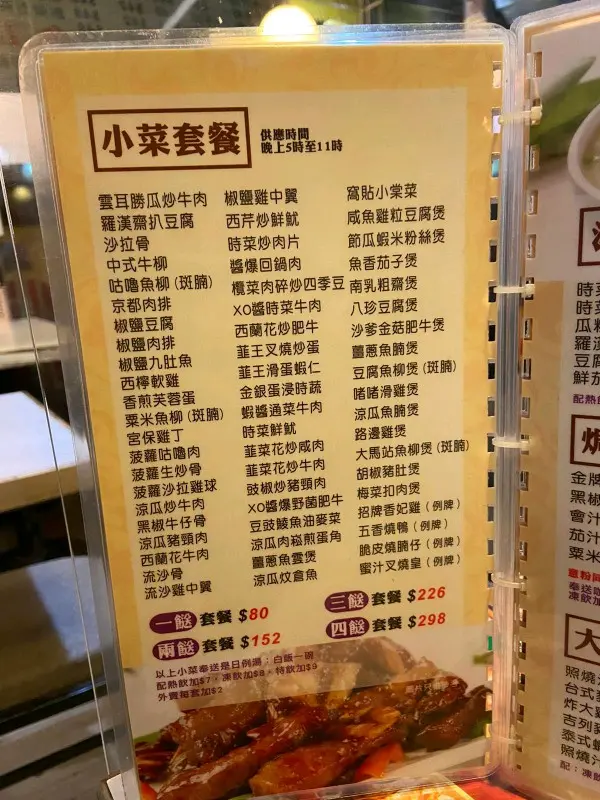 小菜套餐
供應時間
晚上5時至11時
雲耳勝瓜炒牛肉
羅漢齋扒豆腐
沙拉骨
中式牛柳
咕嚕魚柳(斑腩)
京都肉排
椒鹽豆腐
椒鹽肉排
椒鹽九肚魚
西檸軟雞
香煎芙蓉蛋
粟米魚柳(斑腩)
宮保雞丁
菠蘿咕嚕肉
菠蘿生炒骨
菠蘿沙拉雞球
涼瓜炒牛肉
黑椒牛仔骨
涼瓜豬頸肉
西蘭花牛肉
流沙骨
流沙雞中翼
椒鹽雞中翼
西芹炒鮮魷
時菜炒肉片
醬爆回鍋肉
欖菜肉碎炒四季豆
XO醬時菜牛肉
西蘭花炒肥牛
韮王叉燒炒蛋
韮王滑蛋蝦仁
金銀蛋浸時蔬
蝦醬通菜牛肉
時菜鮮魷
韮菜花炒咸肉
韮菜花炒牛肉
豉椒炒豬頸肉
XO醬爆野菌肥牛
豆豉鯪魚油麥菜
涼瓜肉崧煎蛋角
薑蔥魚雲煲
涼瓜炆倉魚
窩貼小棠菜
咸魚雞粒豆腐煲
節瓜蝦米粉絲煲
魚香茄子煲
南乳粗齋煲
八珍豆腐煲
沙爹金菇肥牛煲
薑蔥魚腩煲
豆腐魚柳煲(斑腩)
啫啫滑雞煲
涼瓜魚腩煲
路邊雞煲
大馬站魚柳煲(斑腩)
胡椒豬肚煲
梅菜扣肉煲
招牌香妃雞(例牌)
五香燒鴨(例牌)
脆皮燒腩仔(例牌)
蜜汁叉燒皇(例牌)
一餸 套餐 $80
兩餸 套餐 $152
三餸 套餐 $226
四餸 套餐 $298
以上小菜奉送是日例湯，白飯一碗
配熱飲加$7，凍飲加$8，特飲加$9
外賣每套加$2
時菜
時菜
瓜粒
羅漢
豆腐
鮮茄
配熱飲
金牌
黑椒
會汁
茄汁
粟米
意粉
奉送
凍飲加
大
照燒
台式
炸大雞
吉列豬
泰式
照燒汁
配：凍飲